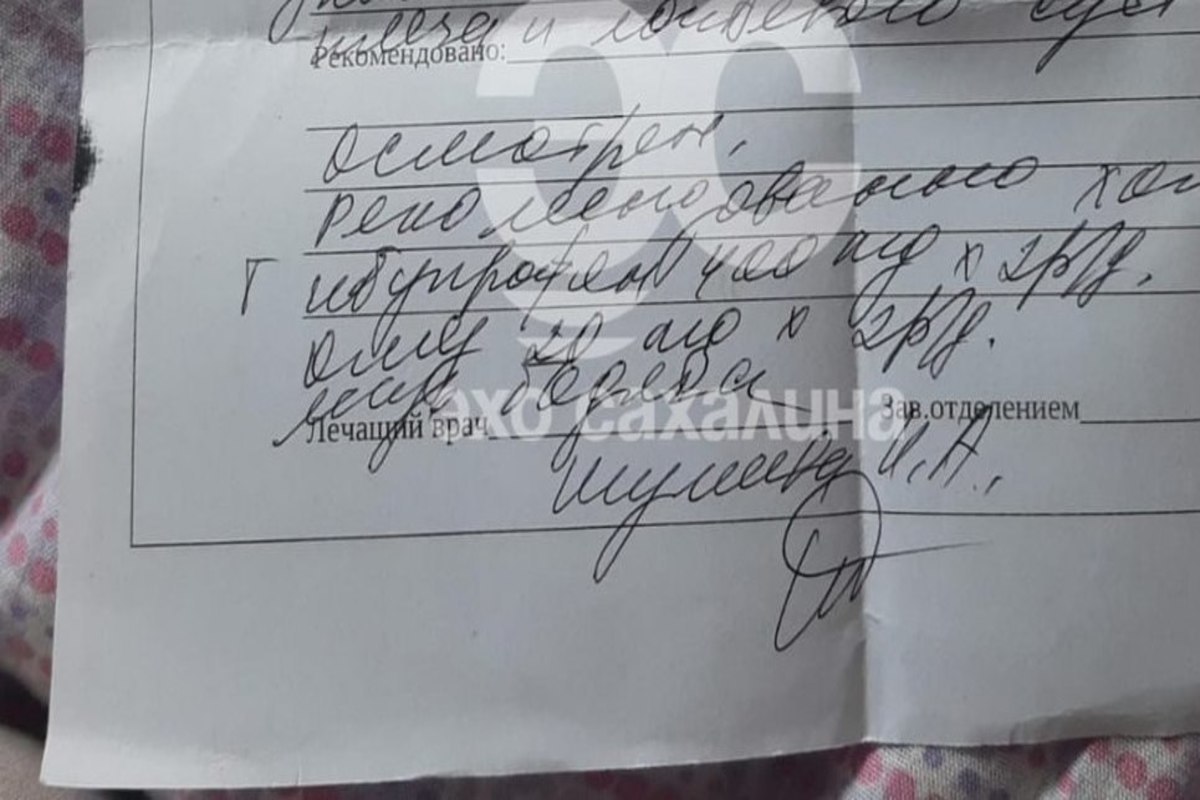 плеча и локтевого суст
Рекомендовано:
осмотрен,
рекомендовано хол
Т ибупрофен 400 мг х 2р/д.
омез 20 мг х 2р/д.
Лечащий врач Зав.отделением
И.А.,
эхо сахалина